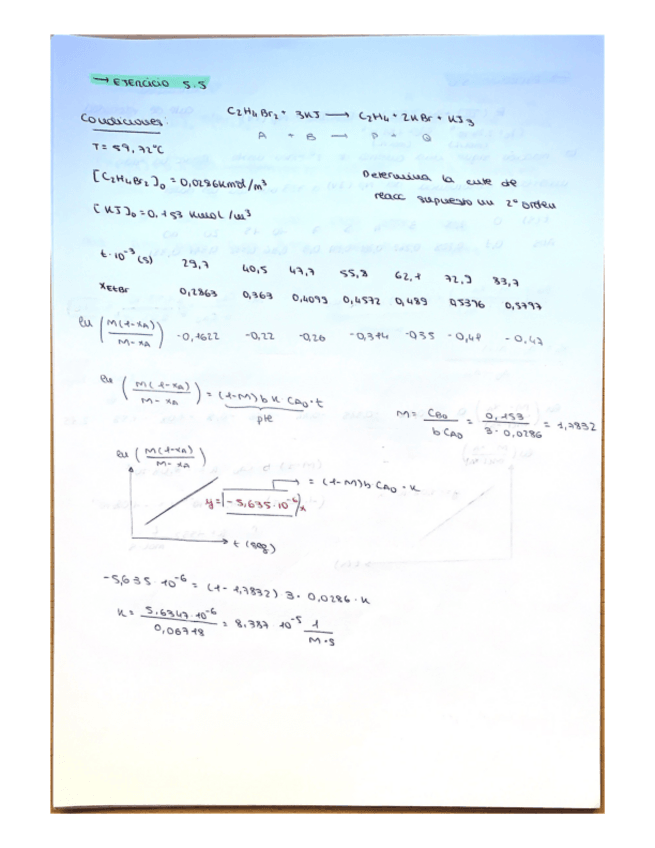 → EJERCICIO 5.5
Condiciones:
C2H4Br2 + 3KJ → C2H4 + 2KBr + KJ3
A + B → P + Q
T = 59,72ºC
[C2H4Br2]0 = 0,0286 Kmol/m³
[KJ]0 = 0,153 Kmol/m³
Determina la cute de
reacc supuesto un 2º orden
t·10⁻³ (s) 29,7 40,5 47,7 55,8 62,1 72,9 83,7
XEtBr 0,2863 0,363 0,4099 0,4572 0,489 0,5396 0,5797
ln (M(1-xA)/M-xA) -0,1622 -0,22 -0,26 -0,314 -0,35 -0,41 -0,47
ln (M(1-xA)/M-xA) = (1-M) b K CA0·t
pte
M = CB0/b CA0 = 0,153/3·0,0286 = 1,7832
ln (M(1-xA)/M-xA)
→ = (1-M) b CA0·K
y = -5,635·10⁻⁶ x
t (seg)
-5,635·10⁻⁶ = (1-1,7832) 3·0,0286·K
K = 5,6347·10⁻⁶/0,06718 = 8,387·10⁻⁵ 1/M·s